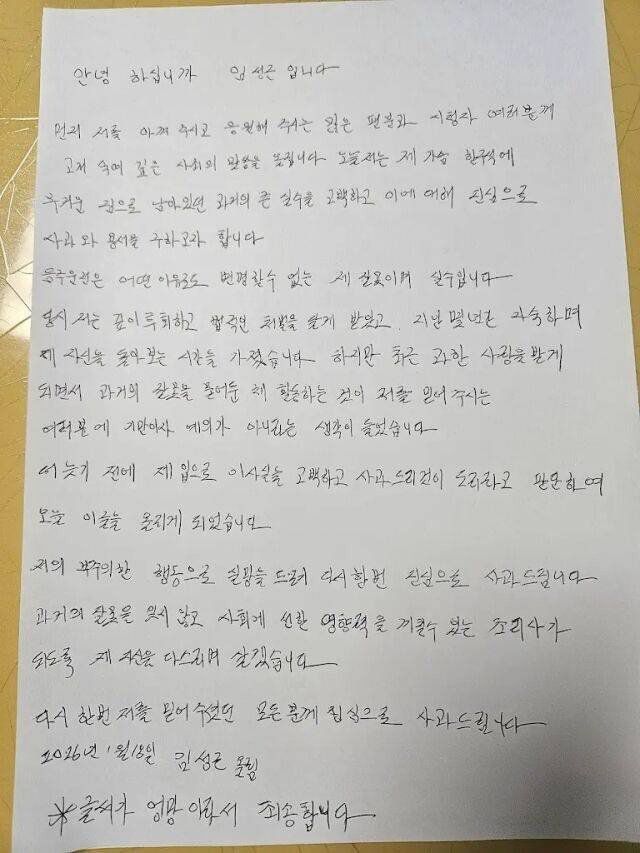 안녕 하십니까 임성근 입니다
먼저 저를 아껴 주시고 응원해 주시는 많은 팬분과 시청자 여러분께
고개 숙여 깊은 사죄의 말씀을 올립니다 오늘 저는 제 가슴 한구석에
무거운 짐으로 남아있던 과거의 큰 실수를 고백하고 이에 대해 진심으로
사과와 용서를 구하고자 합니다
음주운전은 어떤 이유로도 변명할수 없는 제 잘못이며 실수입니다
당시 저는 깊이 후회하고 법적인 처벌을 달게 받았고 지난 몇년간 자숙하며
제 자신을 돌아보는 시간을 가졌습니다 하지만 최근 과한 사랑을 받게
되면서 과거의 잘못을 묻어둔 채 활동하는 것이 저를 믿어 주시는
여러분에 기만이자 예의가 아니라는 생각이 들었습니다
더 늦기 전에 제 입으로 이사실을 고백하고 사과 드리는것이 도리라고 판단하여
오늘 이글을 올리게 되었습니다
저의 부주의한 행동으로 실망을 드려 다시한번 진심으로 사과드립니다
과거의 잘못을 잊지 않고 사회에 선한 영향력을 끼칠수 있는 조리사가
되도록 제 자신을 다스리며 살겠습니다
다시 한번 저를 믿어 주셨던 모든 분께 진심으로 사과드립니다
2026년 1월 18일 김성근 올림
※글씨가 엉망 이라서 죄송합니다